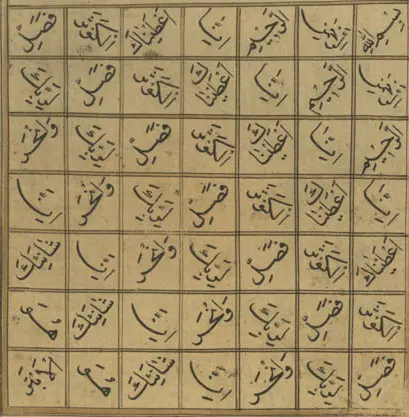 بسم الله الرحمن الرحيم انا اعطيناك الكوثر فصل
الرحمن الرحيم انا اعطيناك الكوثر فصل لربك
الرحيم انا اعطيناك الكوثر فصل لربك وانحر
انا اعطيناك الكوثر فصل لربك وانحر ان
اعطيناك الكوثر فصل لربك وانحر ان شانئك
الكوثر فصل لربك وانحر ان شانئك هو
فصل لربك وانحر ان شانئك هو الابتر